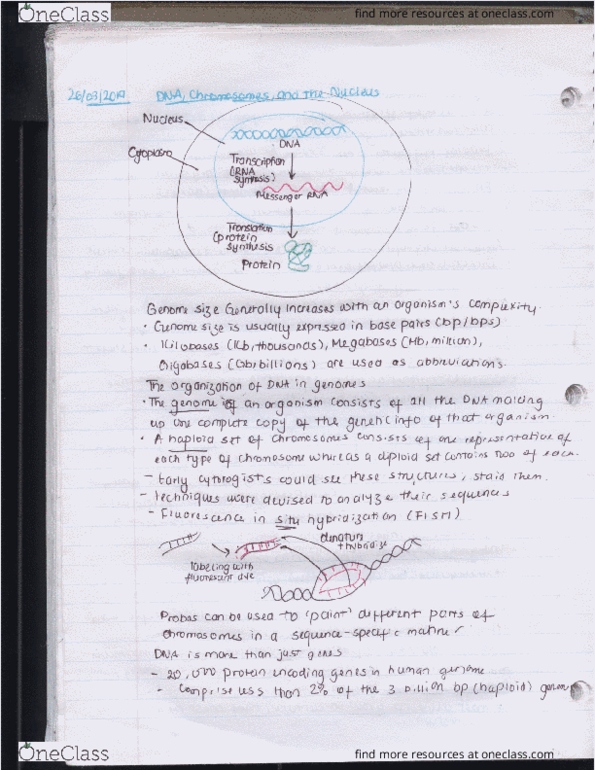 OneClass
find more resources at oneclass.com
26/03/2019 DNA, Chromosomes, and the Nucleus
Nucleus
Cytoplasm
DNA
Transcription
(RNA
synthesis)
Messenger RNA
Translation
(protein
synthesis
Protein
Genome size Generally increases with an organism's complexity.
• Genome size is usually expressed in base pairs (bp/bps)
• Kilobases (Kb, thousands), Megabases (Mb, million),
Gigabases (Gb, billions) are used as abbreviations.
The organization of DNA in genomes
• The genome of an organism consists of all the DNA making
up one complete copy of the genetic info of that organism.
• A haploid set of chromosomes consists of one representative of
each type of chromosome whereas a diploid set contains two of each.
- Early cytologists could see these structures, stain them.
- Techniques were devised to analyze their sequences
- Fluorescence in situ hybridization (FISH)
denature
+ hybridize
labeling with
fluorescent dye
Probes can be used to 'paint' different parts of
chromosomes in a sequence-specific matter
DNA is more than just genes
- 20,000 protein encoding genes in human genome
- Comprise less than 2% of the 3 billion bp (haploid) genome
OneClass
find more resources at oneclass.com